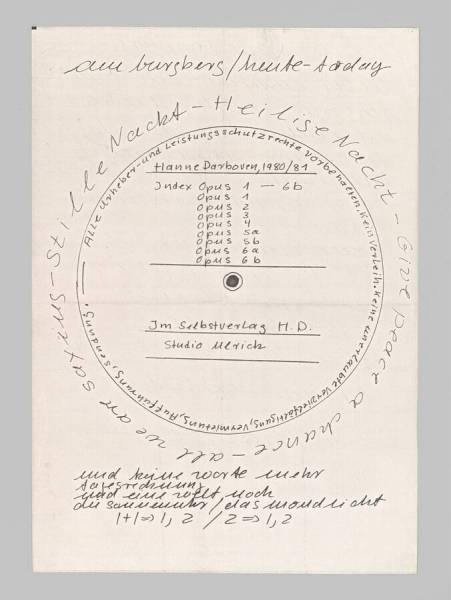 am burgberg/heute-today
Stille Nacht - Heilige Nacht - Give peace a chance - all we are saying -
Alle Urheber- und Leistungsschutzrechte vorbehalten. Kein Verleih. Keine unerlaubte Vervielfältigung, Vermietung, Aufführung, Sendung.
Hanne Darboven, 1980/81
Index Opus 1 — 6b
Opus 1
Opus 2
Opus 3
Opus 4
Opus 5a
Opus 5b
Opus 6a
Opus 6b
Im Selbstverlag H.D.
Studio Ulrich
und keine worte mehr
tagesrechnung
und eine welt noch
die sonnenuhr/das mondlicht
1+1=>1,2 /2=>1,2